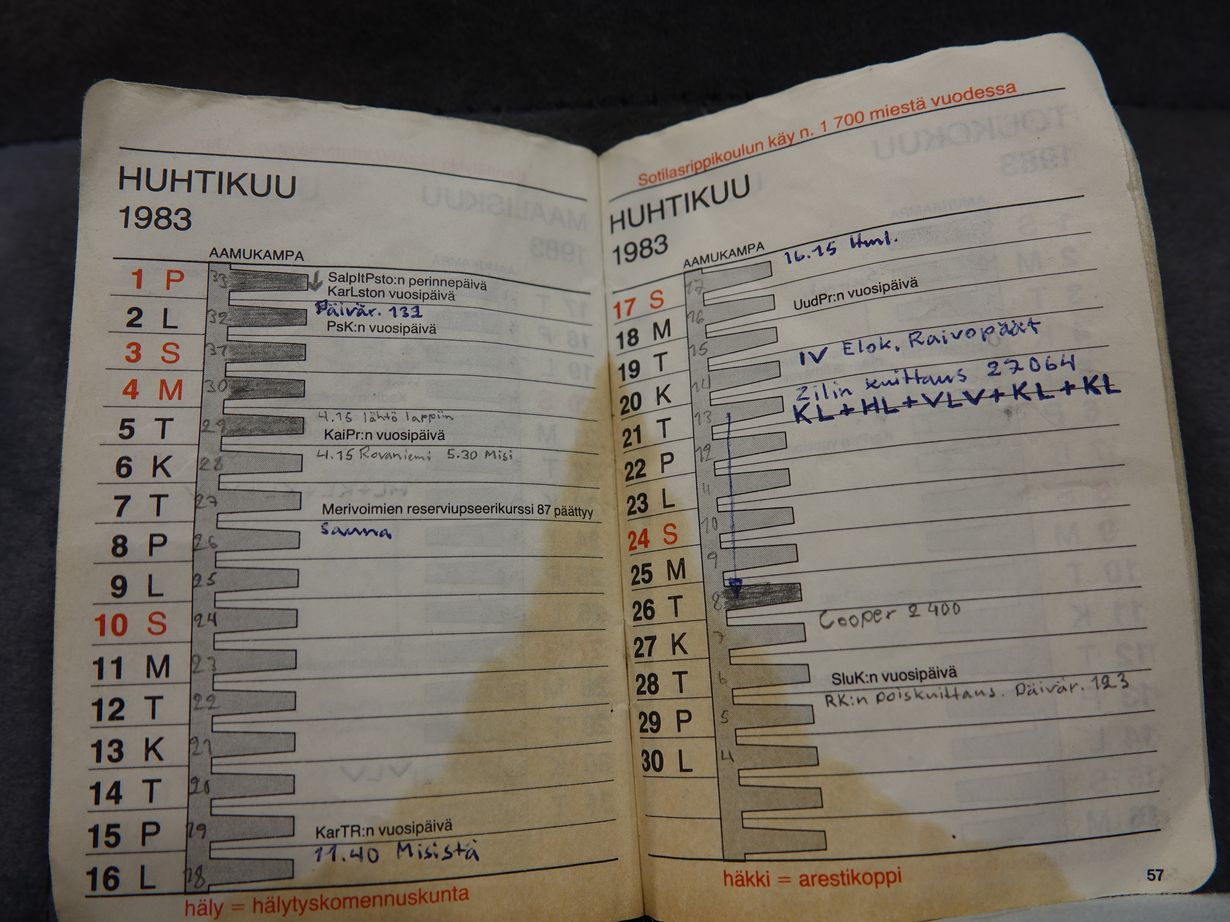 HUHTIKUU
1983
AAMUKAMPA
1 P 33 SalpItPsto:n perinnepäivä
KarLston vuosipäivä
2 L 32 Päivär. 131
PsK:n vuosipäivä
3 S 31
4 M 30
4.15 lähtö lappiin
5 T 29 KaiPr:n vuosipäivä
6 K 28 4.15 Rovaniemi 5.30 Misi
7 T 27 Merivoimien reserviupseerikurssi 87 päättyy
8 P 26 Sauna
9 L 25
10 S 24
11 M 23
12 T 22
13 K 21
14 T 20
15 P 19 KarTR:n vuosipäivä
16 L 18 11.40 Misistä
häly = hälytyskomennuskunta
Sotilasrippikoulun käy n. 1 700 miestä vuodessa
HUHTIKUU
1983
AAMUKAMPA
17 S 17 16.15 Hml.
18 M 16 UudPr:n vuosipäivä
19 T 15 IV Elok. Raivopäät
20 K 14 Zilin kuittaus 27064
21 T 13 KL+HL+VLV+KL+KL
22 P 12
23 L 11
24 S 10
25 M 9
26 T 8
27 K 7 Cooper 2400
28 T 6 SluK:n vuosipäivä
29 P 5 RK:n poiskuittaus. Päivär. 123
30 L 4
häkki = arestikoppi
57